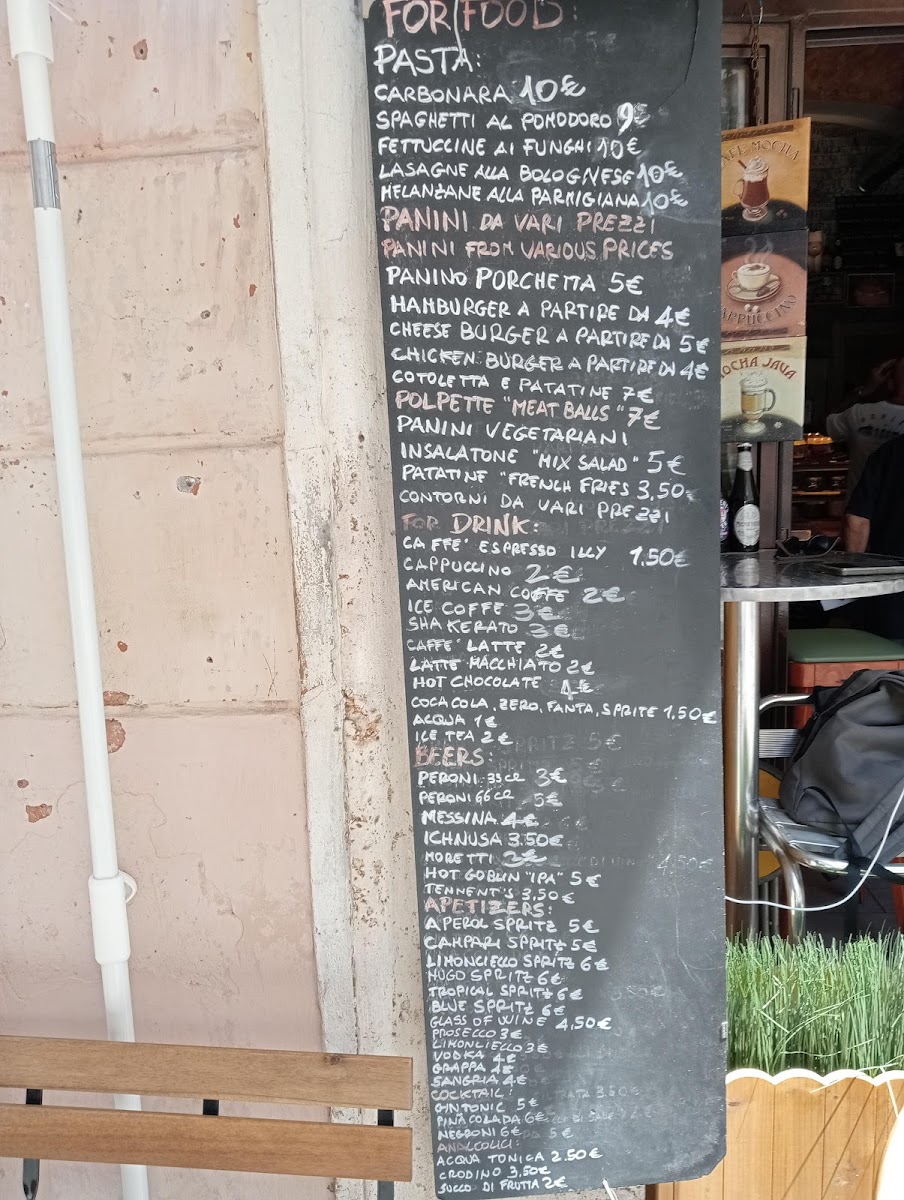 FOR FOOD:
PASTA:
CARBONARA 10€
SPAGHETTI AL POMODORO 9€
FETTUCCINE AI FUNGHI 10€
LASAGNE ALLA BOLOGNESE 10€
MELANZANE ALLA PARMIGIANA 10€
PANINI DA VARI PREZZI
PANINI FROM VARIOUS PRICES
PANINO PORCHETTA 5€
HAMBURGER A PARTIRE DA 4€
CHEESE BURGER A PARTIRE DA 5€
CHICKEN BURGER A PARTIRE DA 4€
COTOLETTA E PATATINE 7€
POLPETTE "MEAT BALLS" 7€
PANINI VEGETARIANI
INSALATONE "MIX SALAD" 5€
PATATINE "FRENCH FRIES 3,50€
CONTORNI DA VARI PREZZI
FOR DRINK:
CAFFE' ESPRESSO ILLY 1.50€
CAPPUCCINO 2€
AMERICAN COFFE 2€
ICE COFFE 3€
SHAKERATO 3€
CAFFE' LATTE 2€
LATTE MACCHIATO 2€
HOT CHOCOLATE 4€
COCA COLA, ZERO, FANTA, SPRITE 1,50€
ACQUA 1€
ICE TEA 2€
BEERS:
PERONI 33CL 3€
PERONI 66CL 5€
MESSINA 4€
ICHNUSA 3.50€
MORETTI 3€
HOT GOBLIN "IPA" 5€
TENNENT'S 3,50€
APETIZERS:
APEROL SPRITZ 5€
CAMPARI SPRITZ 5€
LIMONCIELLO SPRITZ 6€
HUGO SPRITZ 6€
TROPICAL SPRITZ 6€
BLUE SPRITZ 6€
GLASS OF WINE 4,50€
PROSECCO 3€
LIMONLIELLO 3€
VODKA 4€
GRAPPA 4€
SANGRIA 4€
COCKTAIL:
GINTONIC 5€
PINACOLADA 6€
NEGRONI 6€
ANALCOLICI:
ACQUA TONICA 2.50€
CRODINO 3,50€
SUCCO DI FRUTTA 2€
MOCHA
CAPPUCCINO
MOCHA JAVA